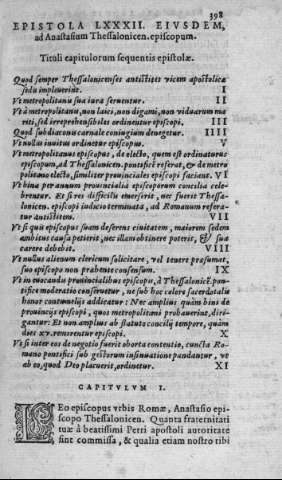 398
EPISTOLA LXXXII. EIVSDEM,
ad Anastasium Thessalonicen. episcopum.
Tituli capitulorum sequentis epistolæ.
Quod semper Thessalonicenses antistites vicem apostolicæ
sedis impleuerint. I
Vt metropolitanis sua iura seruentur. II
Vt à metropolitanis, non laici, non digami, non viduarum ma
riti, sed irreprehensibiles ordinentur episcopi. III
Quod subdiaconis carnale coniugium denegetur. IIII
Vt nullus inuitus ordinetur episcopus. V
Vt metropolitanus episcopus, de electo, quem est ordinaturus
episcopum, ad Thessalonicen. pontificē referat, & de metro
politano electo, similiter prouinciales episcopi faciant. VI
Vt bina per annum prouincialia episcoporum concilia cele-
brentur. Et si res difficilis emerserit, nec fuerit Thessa-
lonicen. episcopi iudicio terminata, ad Romanum refera-
tur antistitem. VII
Vt si quis episcopus suam deserens ciuitatem, maiorem sedem
ambitus causa petierit, nec illam obtinere poterit, & sua
carere debebit. VIII
Vt nullus alienum clericum solicitare, vel tenere præsumat,
suo episcopo non præbente consensum. IX
Vt in euocandis prouincialibus episcopis, à Thessalonicē. pon-
tifice moderatio conseruetur, ne sub hoc colore sacerdotalis
honor contumeliis addicatur: Nec amplius quàm bini de
prouinciis episcopi, quos metropolitani probauerint, diri-
gantur: Et non amplius ab statuto concilij tempore, quàm
dies xv. remorentur episcopi. X
Vt si inter eos de negotio fuerit oborta contentio, cuncta Ro-
mano pontifici sub gestorum insinuatione pandantur, vt
ab eo, quod Deo placuerit, ordinetur. XI
CAPITVLVM I.
LEo episcopus vrbis Romæ, Anastasio epi-
scopo Thessalonicen. Quanta fraternitati
tuæ à beatissimi Petri apostoli autoritate
sint commissa, & qualia etiam nostro tibi